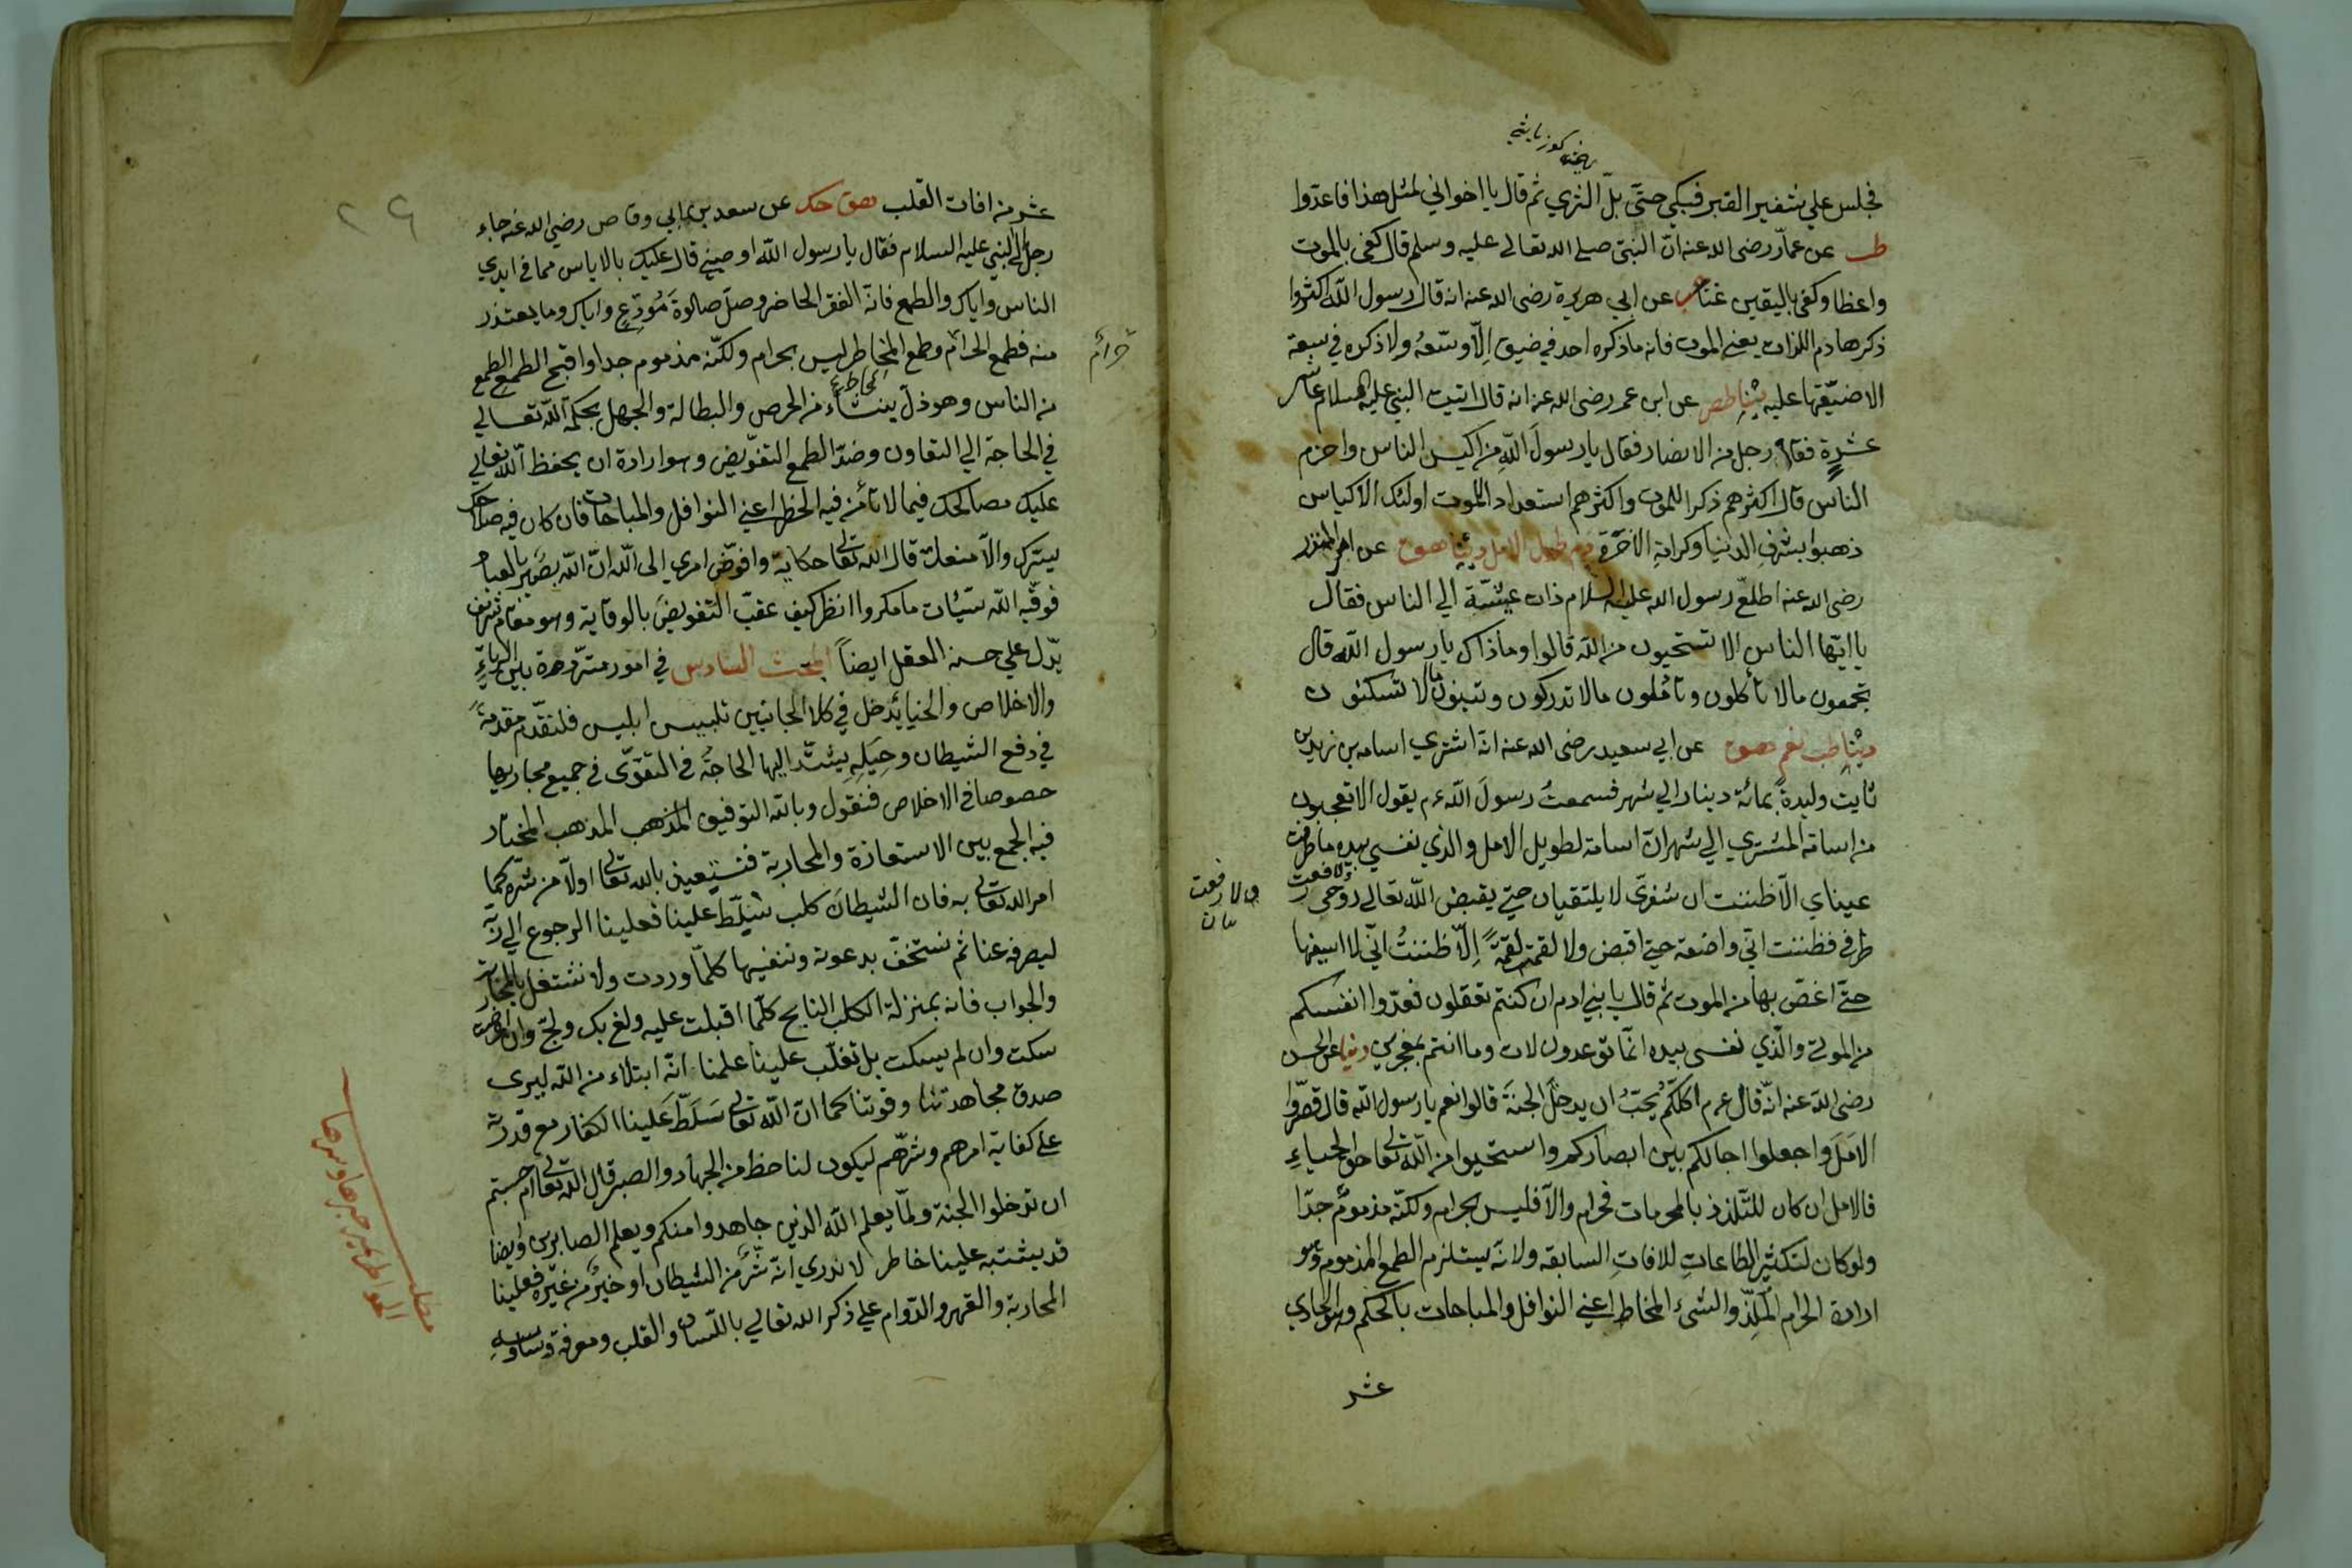 فجلس علي شفير القبر فبكي حتّي بلّ الثري ثم قال يا اخواني لمثل هذا فاعدّوا
طب عن عمار رضى الله عنه انّ النبي صلى الله تعالى عليه وسلم قال كفى بالموت
واعظا وكفى باليقين غنا عن ابي هريرة رضى الله عنه انه قال رسول الله اكثروا
ذكر هادم اللذات يعني الموت فانه ما ذكره احد في ضيق إلّا وسّعه ولا ذكره في سعة
الا ضيّقها عليه عن ابن عمر رضى الله عنه انه قال اتيت النبي عليه السلام عاشر
عشرة فقام رجل من الانصار فقال يا رسول الله من اكيس الناس واحزم
الناس قال اكثرهم ذكرا للموت واكثرهم استعدادا للموت اولئك الاكياس
ذهبوا بشرف الدنيا وكرامة الآخرة عن ام المنذر
رضى الله عنه اطلع رسول الله عليه السلام ذات عشيّة الي الناس فقال
يا ايّها الناس الا تستحيون من الله قالوا وما ذاك يا رسول الله قال
تجمعون مالا تأكلون وتأملون مالا تدركون وتبنون مالا تسكنون
عن ابي سعيد رضى الله عنه انّه اشتري اسامه بن زيد بن
ثابت وليدة بمائة دينار الي شهر فسمعت رسول الله عم يقول الا تعجبون
من اسامة المشتري الي شهر انّ اسامة لطويل الامل والذي نفسي بيده ما طرفت
عيناي الّا ظننت ان شفري لا يلتقيان حتي يقبض الله تعالى روحي ولا رفعت
طرفي فظننت انّي واضعه حتي اقبض ولا لقمت لقمة إلّا ظننتُ انّي لا اسيغها
حتّي اغصّ بها من الموت ثم قال يا بني ادم ان كنتم تعقلون فعدّوا انفسكم
من الموتى والّذي نفسى بيده انّما توعدون لآت وما انتم بمعجزين عن الحسن
رضى الله عنه انّه قال عم اكلّكم يحبّ ان يدخل الجنة قالوا نعم يا رسول الله قال قصّروا
الامل واجعلوا اجالكم بين ابصاركم واستحيوا من الله تعالى حق الحياء
فالامل ان كان للتّلذذ بالمحرمات فحرام والّا فليس بحرام ولكنّه مذموم جدّا
ولو كان لتكثير الطاعات للافات السابقه ولانّه يستلزم الطمع المذموم وهو
ارادة الحرام الملذّ والشئ المخاطر اعني النوافل والمباحات بالحكم وهو الحادي
عشر
ولا رفعت
عشر من افات القلب عن سعد بن ابي وقاص رضى الله عنه جاء
رجل الي النبي عليه السلام فقال يا رسول الله اوصيني قال عليك بالاياس مما في ايدي
الناس واياك والطمع فانّه الفقر الحاضر وصلّ صلوة مودّع واياك وما يعتذر
منه فطمع الحرام وطمع المخاطر ليس بحرام ولكنّه مذموم جدا واقبح الطمع الطمع
من الناس وهو ذل ينشاء من الحرص والبطالة والجهل بحكمة الله تعالي
في الحاجة الي التعاون وضدّ الطمع التفويض وهو ارادة ان يحفظ الله تعالي
عليك مصالحك فيما لا تأمن فيه الخطر اعني النوافل والمباحات فان كان فيه صلاحك
يسّرك والّا منعك قال الله تعالى حكاية وافوّض امري الى الله انّ الله بصير بالعباد
فوقيه الله سيّئات ما مكروا انظر كيف عقبّ التفويض بالوقاية وهو مقام شريف
يدّل علي حسن العقل ايضاً المبحث السادس في امور متردّدة بين الرياء
والاخلاص والحياء يدخل في كلا الجانبين تلبيس ابليس فلنقدّم مقدمة
في دفع الشيطان وحيله يشتدّ اليها الحاجة في التقوى في جميع مجاريها
خصوصا في الاخلاص فنقول وبالله التوفيق المذهب المذهب المختار
فيه الجمع بين الاستعاذة والمحاربة فنستعيذ بالله تعالى اولّا من شره كما
امر الله تعالى به فان الشيطان كلب سلّط علينا فعلينا الرجوع الي ربّه
ليصرفه عنا ثم نستخفّ بدعوته وننفيها كلّما وردت ولا نشتغل بالمحاربة
والجواب فانه بمنزلة الكلب النابح كلّما اقبلت عليه ولغ بك ولجّ وان اعرضت
سكت وان لم يسكت بل تغلّب علينا علمنا انّه ابتلاء من الله ليرى
صدق مجاهدتنا وقوتنا كما انّ الله تعالى سلّط علينا الكفار مع قدرته
على كفاية امرهم وشرّهم ليكون لنا حظ من الجهاد والصبر قال الله تعالى ام حسبتم
ان تدخلوا الجنة ولمّا يعلم الله الذين جاهدوا منكم ويعلم الصابرين وايضا
قد يشتبه علينا خاطر لا ندري انّه شرّ من الشيطان او خير من غيره فعلينا
المحاربة والقهر والدّوام علي ذكر الله تعالي باللسان والقلب ومعرفة وساوسه